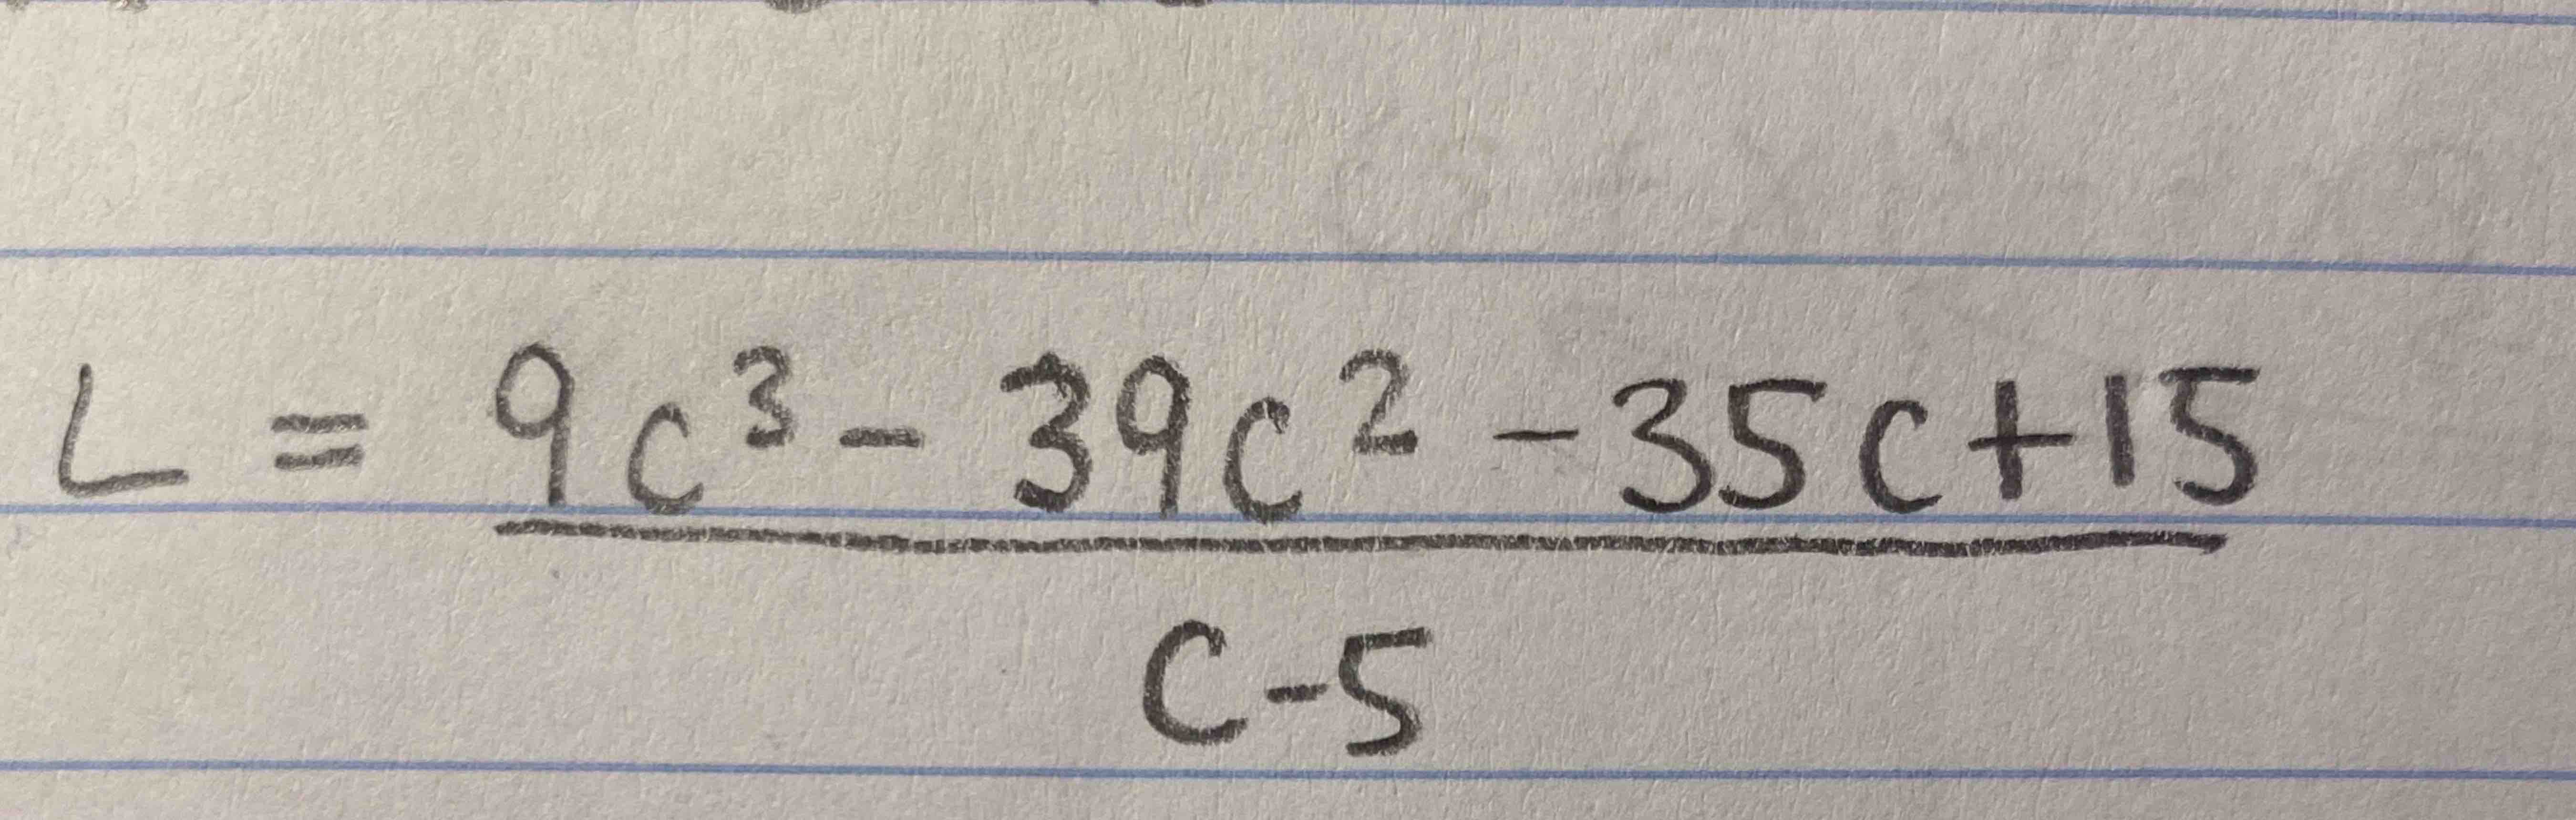 L = 9c³ - 39c² - 35c + 15
c - 5